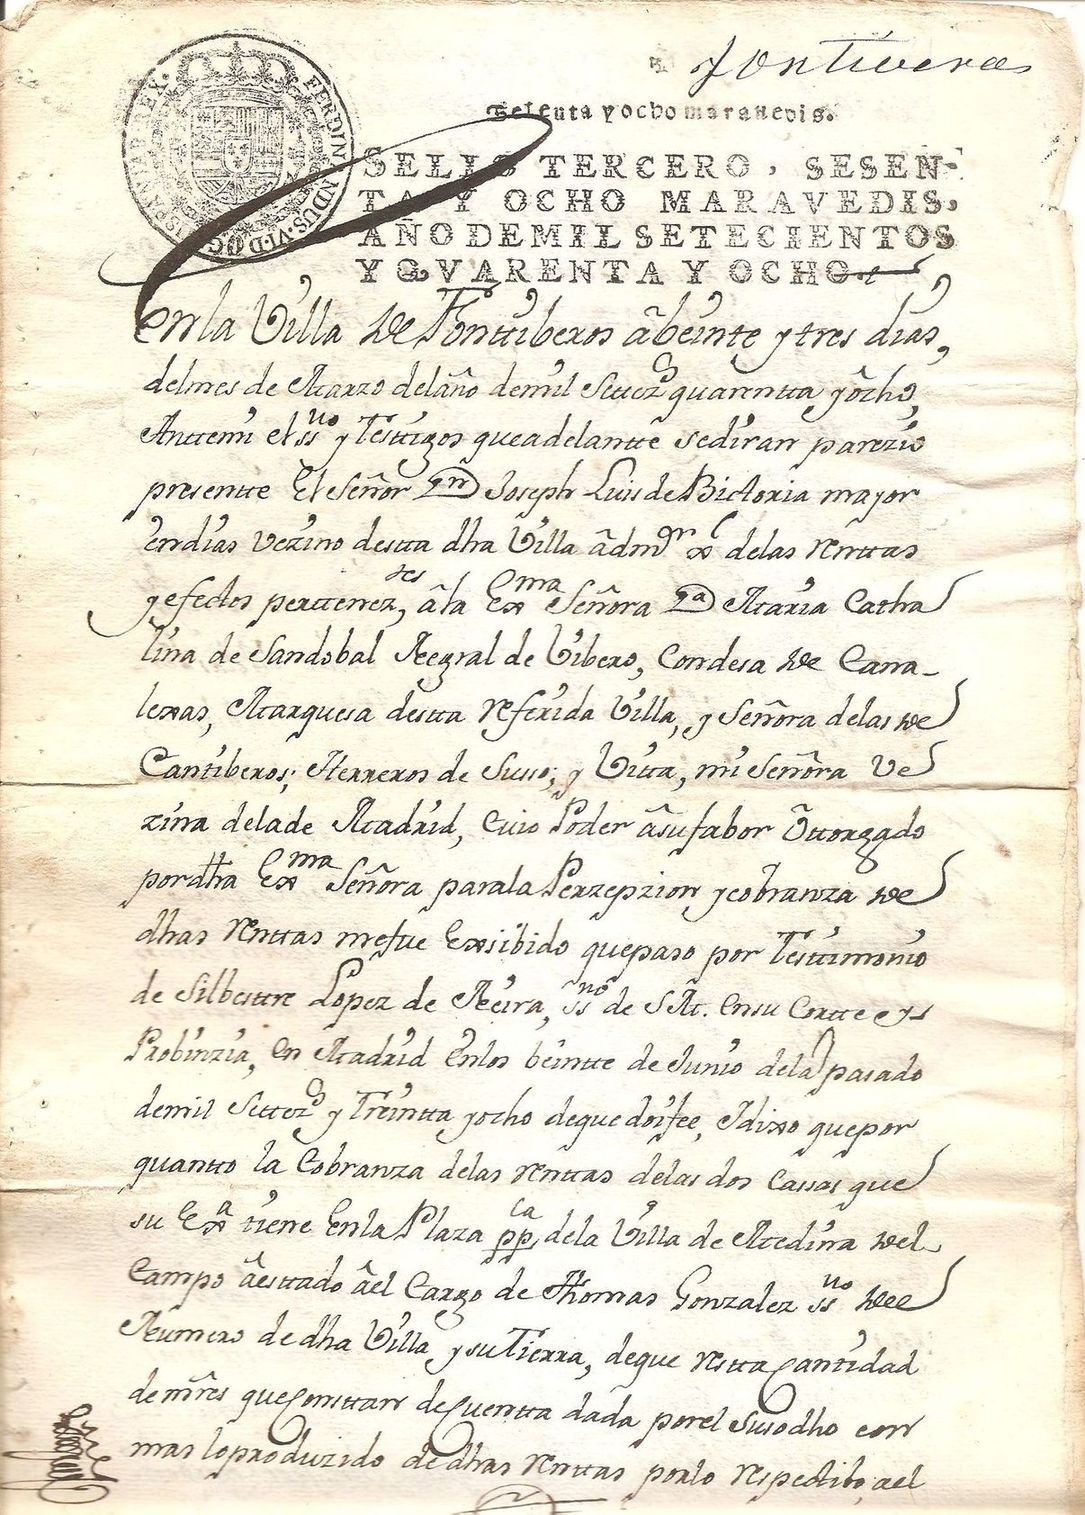 Fontiveros
Sesenta y ocho maravedis.
FERDINANDUS·VI·D·G· HISPANIAR·REX·
SELLO TERCERO, SESEN-
TA Y OCHO MARAVEDIS,
AÑO DE MIL SETECIENTOS
Y QVARENTA Y OCHO.
En la Villa de Fonttiberos â beinte y tres dias,
del mes de Marzo del año de mil Settezos quarentta y ôcho,
Anttemi el ssno y Testtigos que adelantte se diran parezio
presentte El Señor Dn Joseph Luis de Bictoria mayor
en dias vezino destta dha Villa âdmor de las Renttas
y efectos perttenezres, â la Exma Señora Da Maria Catha
lina de Sandobal Negral de Vibero, Condesa de Cana-
lexas, Marquesa destta Referida Villa, y Señora de las de
Cantiberos; Herreros de Susso; y Vitta, mi Señora Ve
zina de la de Madrid, Cuio Poder â su fabor ôttorgado
por dha Exma Señora para la Perzepzion y cobranza de
dhas Renttas me fue Exsibido que paso por Testtimonio
de Silbesttre Lopez de Neira, ssno de S.M. en su Cortte y s
Probinzia, en Madrid en los beintte de Junio del a pasado
de mil Settezos y Treintta y ocho de que doi fee, I dixo que por
quantto la Cobranza de las Renttas de las dos Cassas que
su Exa tiene En la Plaza ppca de la Villa de Medina del
Campo â esttado â el Cargo de Thomas Gonzalez ssno del
Numero de dha Villa y su Tierra, de que Restta Cantidad
de mrs que Consttan de Cuentta dada por el Susodho con
mas lo produzido de dhas Renttas por lo Respectibo, a el